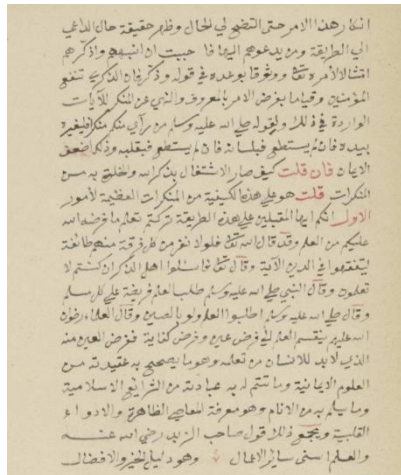 انكار هذا الامر حتى اتضح لي الحال وظهر حقيقة حال الداعي
الي الطريقة ومن يدعوهم اليها فاحببت ان انبههم واذكرهم
امتثالا لامره تعا ووثوقا بوعده في قوله وذكر فان الذكرى تنفع
المؤمنين وقياما بفرض الامر بالمعروف والنهي عن المنكر للآيات
الواردة في ذلك ولقوله صلى الله عليه وسلم من رآي منكم منكرا فليغيره
بيده فان لم يستطع فبلسانه فان لم يستطع فبقلبه وذلك اضعف
الايمان فان قلت كيف صار الاشتغال بذكر الله والخلق به من
المنكرات قلت هو على هذه الكيفية من المنكرات العظيمة لأمور
الاول انكم ايها المقبلين على هذه الطريقة تركتم تعلم ما فرضه الله
عليكم من العلم وقد قال الله تعا فلولا نفر من كل فرقة منهم طائفة
ليتفقهوا في الدين الآية وقال تعا فاسئلوا اهل الذكر ان كنتم لا
تعلمون وقال النبي صلى الله عليه وسلم طلب العلم فريضة على كل مسلم
وقال صلى الله عليه وسلم اطلبوا العلم ولو بالصين وقال العلماء رضوان
الله عليهم ينقسم العلم الى فرض عين وفرض كفاية ففرض العين منه
الذي لا بد للانسان من تعلمه وهو ما يصحح به عقيدته من
العلوم الايمانية وما تتم له به عبادته من الشرائع الاسلامية
وما يسلم به من الاثام وهو معرفة المعاصي الظاهرة والادواء
القلبية ويجمع ذلك قول صاحب الزبد رضي الله عنه
والعلم اسنى سائر الاعمال وهو دليل الخير والافضال